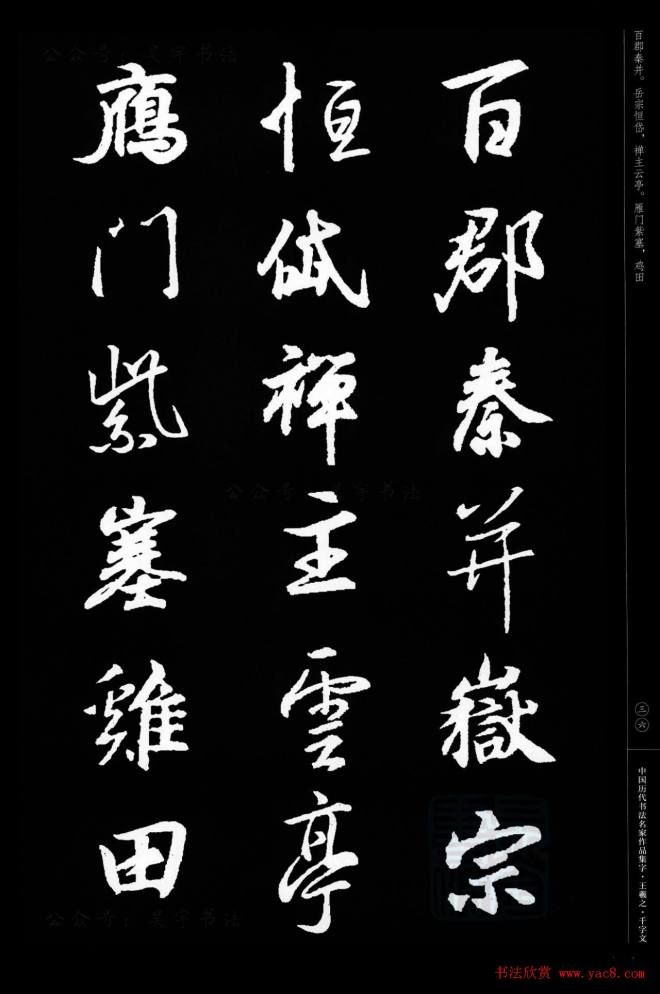 百郡秦并嶽宗
恒岱禅主雲亭
鴈門紫塞雞田
百郡秦并。岳宗恒岱，禅主云亭。雁门紫塞，鸡田
三六
中国历代书法名家作品集字·王羲之·千字文
公众号：昊宇书法
公众号：昊宇书法
公众号：昊宇书法
书法欣赏 www.yac8.com